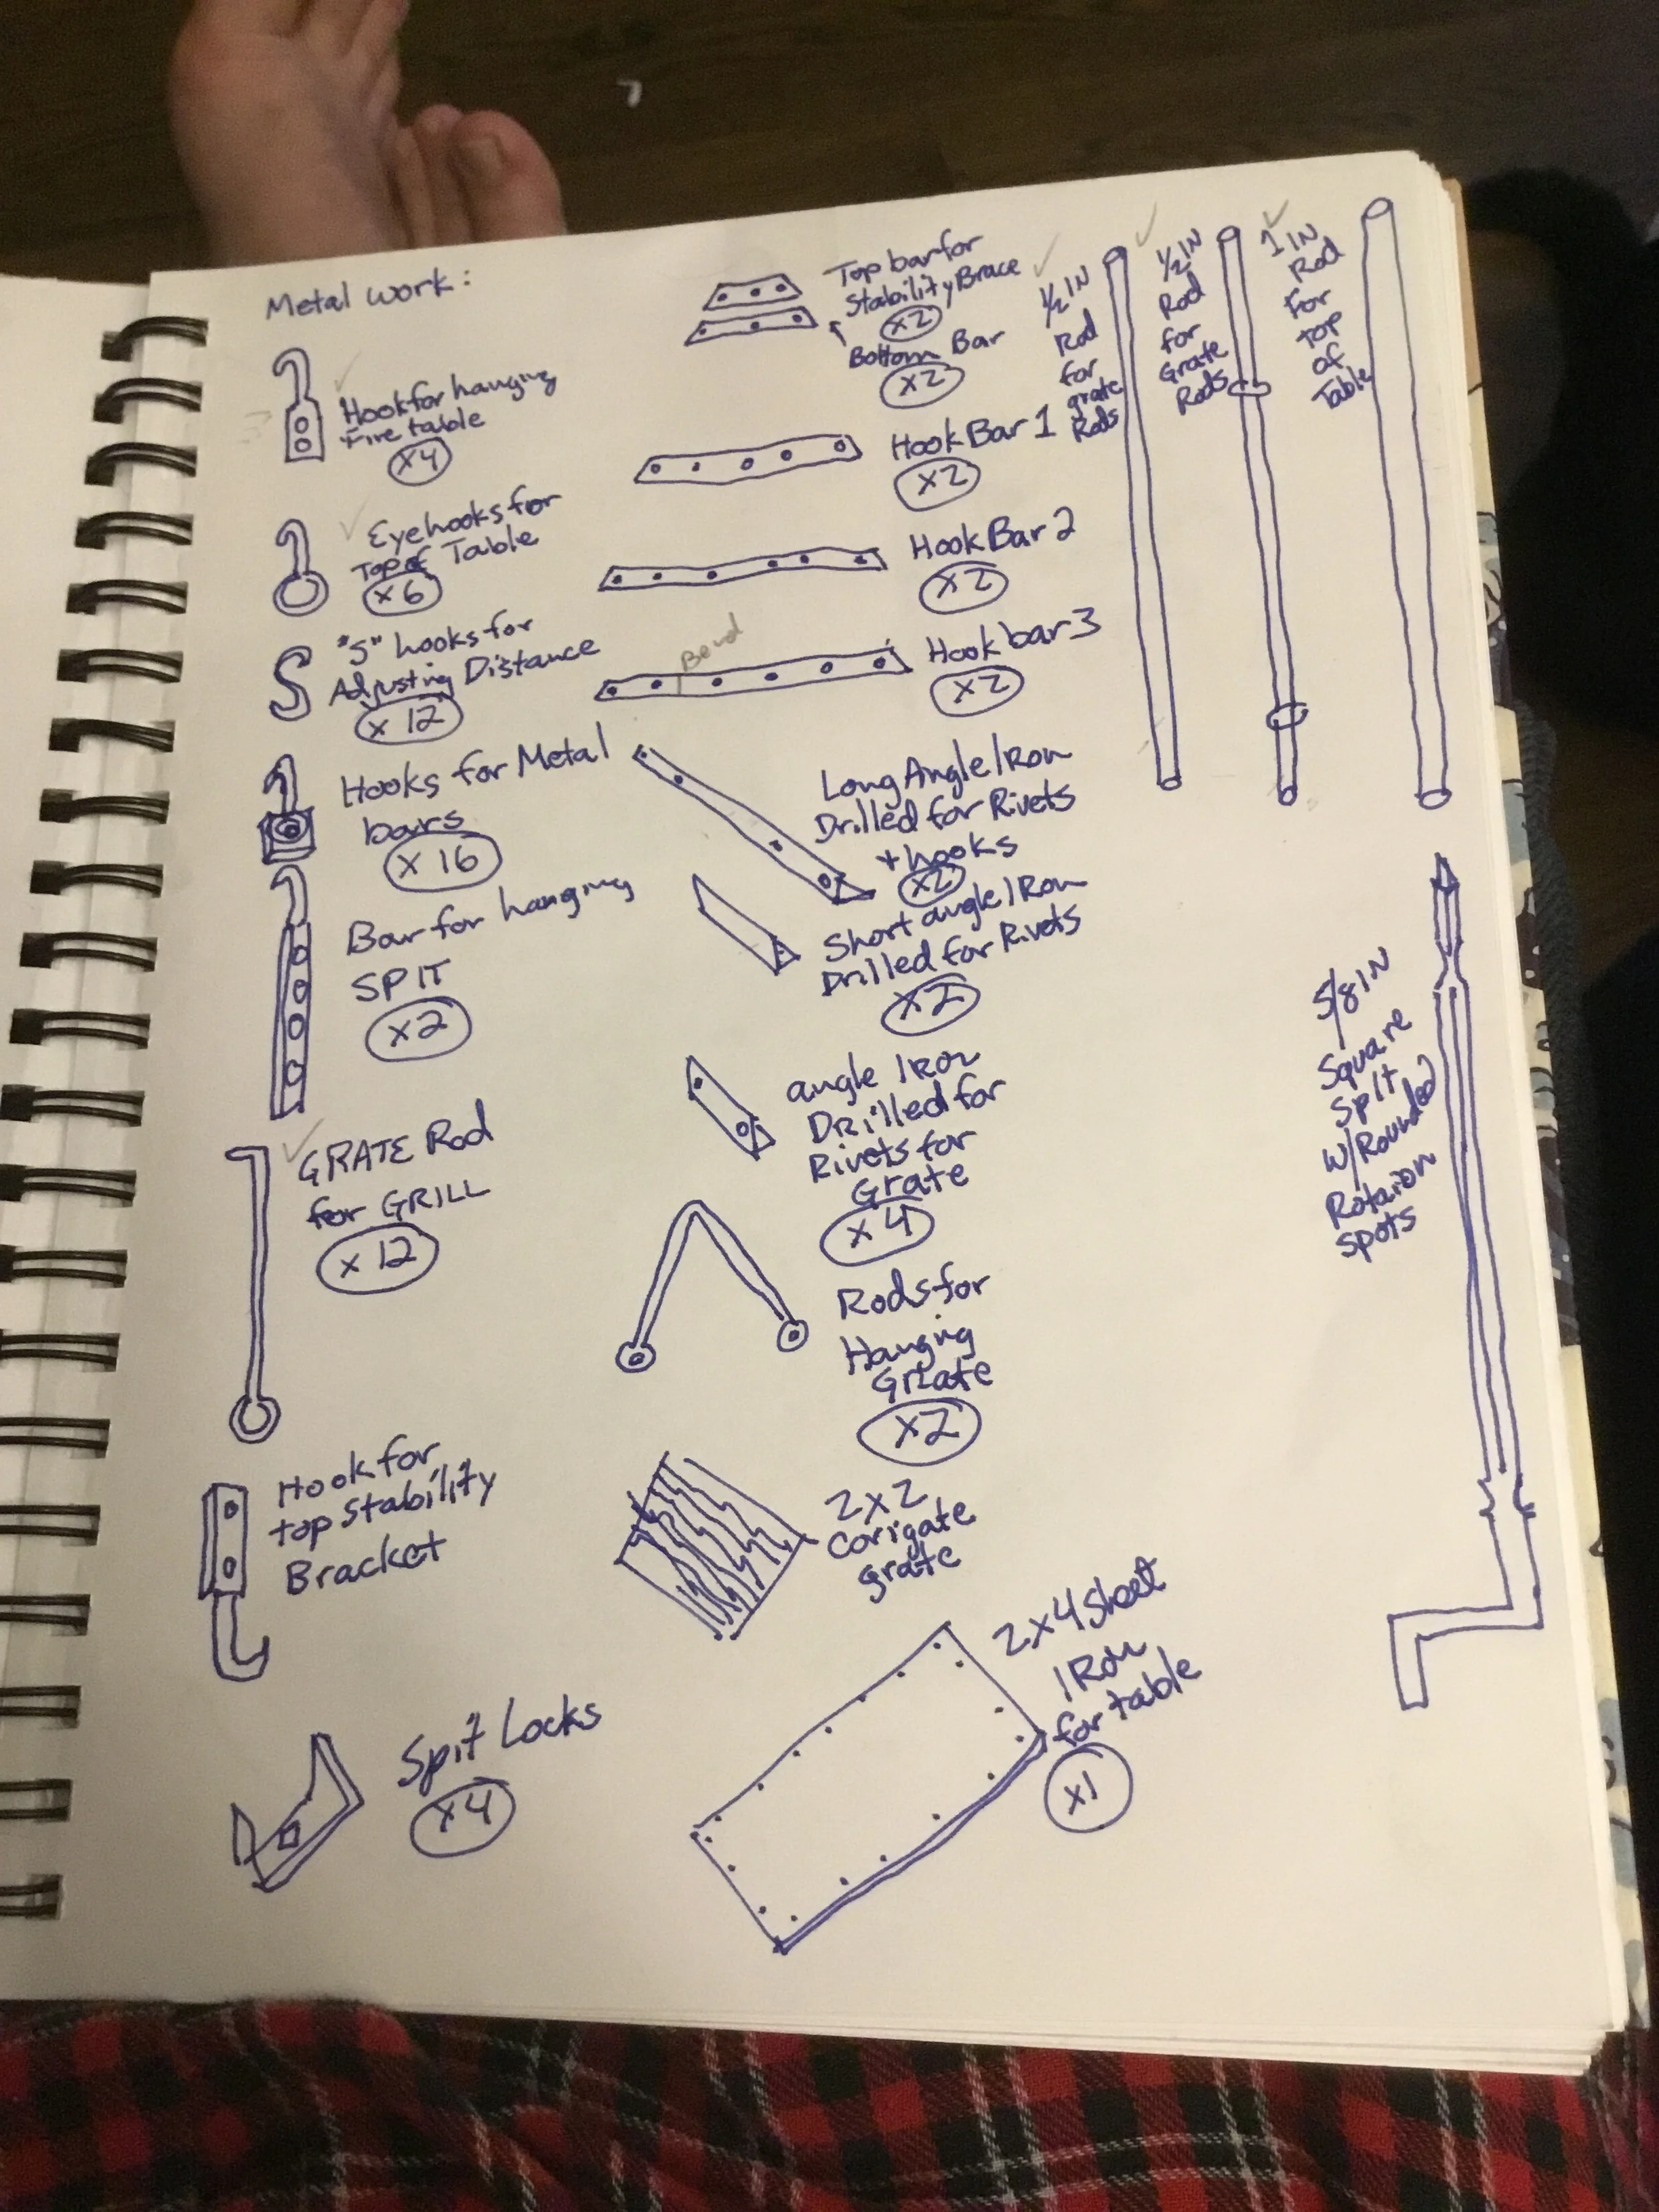 Metal work:
Hook for hanging
Fire table
x4
Eyehooks for
Top of Table
x6
"S" hooks for
Adjusting Distance
x 12
Hooks for Metal
bars
x 16
Bar for hanging
SPIT
x2
GRATE Rod
for GRILL
x 12
Hook for
top stability
Bracket
Spit Locks
x4
Top bar for
Stability Brace
x2
Bottom Bar
x2
Hook Bar 1
x2
Hook Bar 2
x2
Bend
Hook bar 3
x2
Long Angle IRon
Drilled for Rivets
+ hooks
x2
Short angle IRon
Drilled for Rivets
x2
angle IRon
DRilled for
Rivets for
Grate
x4
Rods for
Hanging
Grate
x2
2x2
Corrigate
grate
2x4 Sheet
IRon
for table
x1
1/2 IN
Rod
for
grate
Rods
1/2 IN
Rod
for
Grate
Rods
1 IN
Rod
For
top
of
Table
5/8 IN
Square
Spit
w/Rounded
Rotaion
spots